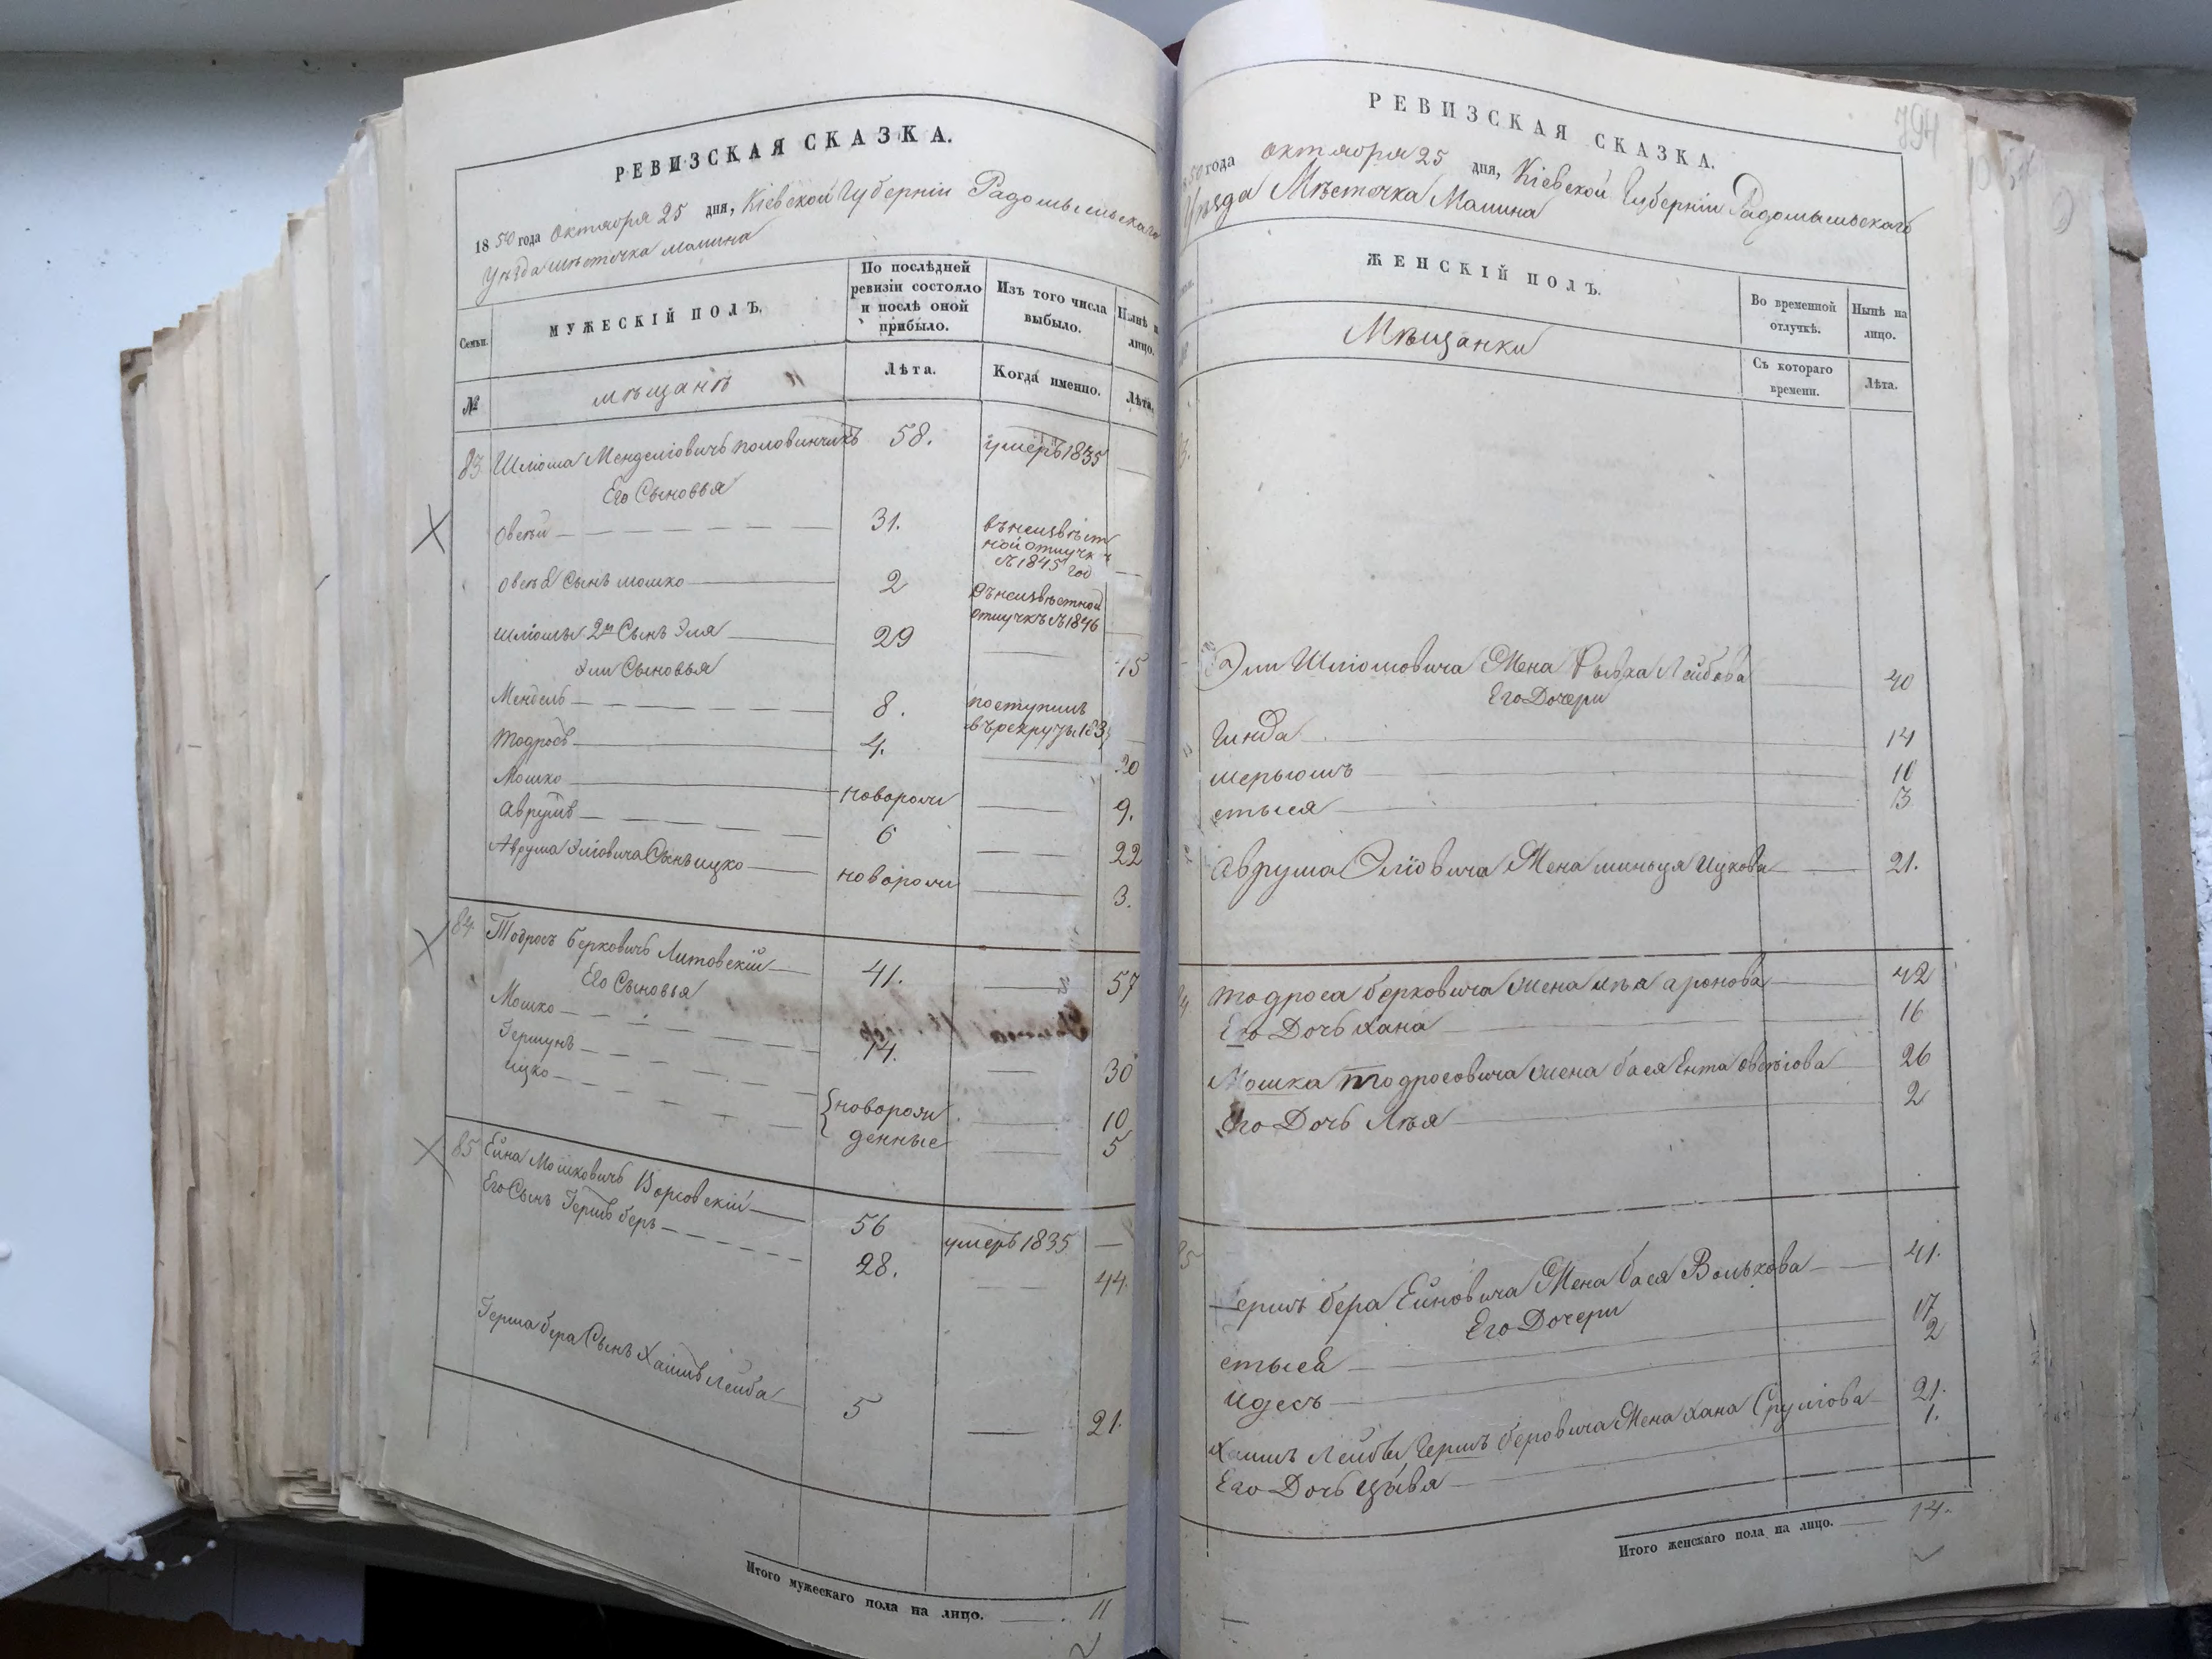 РЕВИЗСКАЯ СКАЗКА.
1850 года Октября 25 дня, Кіевской Губерніи Радомысльскаго
Уѣзда мѣстечка малина
Семьи.
МУЖЕСКІЙ ПОЛЪ.
По послѣдней ревизіи состояло и послѣ оной прибыло.
Изъ того числа выбыло.
Нынѣ на лицо.
№
мѣщанъ
Лѣта.
Когда именно.
Лѣта.
83 Шліома Менделіовичъ половинчикъ 58. умеръ 1835 —
Его Сыновья
Овсѣй — 31. въ неизвѣст
ной отлучкѣ
съ 1845 год —
Овсѣя Сынъ мошко — 2 въ неизвѣстной
отлучкѣ съ 1846 —
Шліомы 2й Сынъ Эля — 29 — 45
Эли Сыновья
Мендель — 8. поступилъ
въ рекруты 183 —
Тодросъ — 4. — 20
Мошко — новорож — 9.
Аврумъ — 6 — 22
Аврума Эліовича Сынъ ицко — новорож — 3.
84 Тодросъ Берковичъ Литовскій — 41. — 57
Его Сыновья
Мошко — 14. — 30
Гершунъ — {новорож — 10
ицко — денные — 5
85 Ейна Мошковичъ 56 умеръ 1835 —
Его Сынъ Гершъ беръ — 28. — 44.
Герша бера Сынъ Хаимъ Лейба — 5 — 21.
Итого мужескаго пола на лицо. — 11
794
РЕВИЗСКАЯ СКАЗКА.
1850 года Октября 25 дня, Кіевской Губерніи Радомысльскаго
Уѣзда Мѣстечка Малина
ЖЕНСКІЙ ПОЛЪ.
Во временной отлучкѣ.
Нынѣ на лицо.
Мѣщанки
Съ котораго времени.
Лѣта.
Эли Шліомовича Жена Рывка Лейбова — 40
Его Дочери
Гинда — 14
мерьюмъ — 10
стыся — 3
Аврума Эліовича Жена миньця Ицкова — 21.
Тодроса берковича жена лѣя аронова — 42
Его Дочь хана — 16
Мошка Тодросовича жена бася Ента овсѣіова — 26
Его Дочь Лѣя — 2
85
Гершъ бера Ейновича Жена бася Волькова — 41.
Его Дочери
стыся — 17
идесъ — 2
Хаимъ Лейбы Гершъ беровича Жена хана Сруліова — 21.
Его Дочь цывя — 1.
Итого женскаго пола на лицо. — 14.